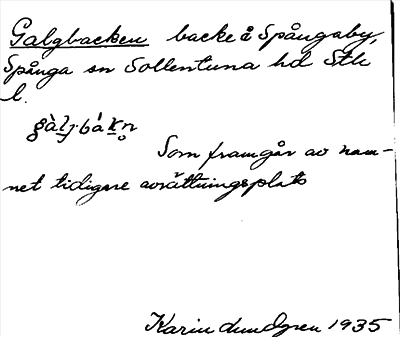 Galgbacken backe å Spångaby,
Spånga sn Sollentuna hd Sthlm
l.
gàlj·bák̥n̥
Som framgår av nam-
net tidigare avrättningsplats
Karin Lundgren 1935